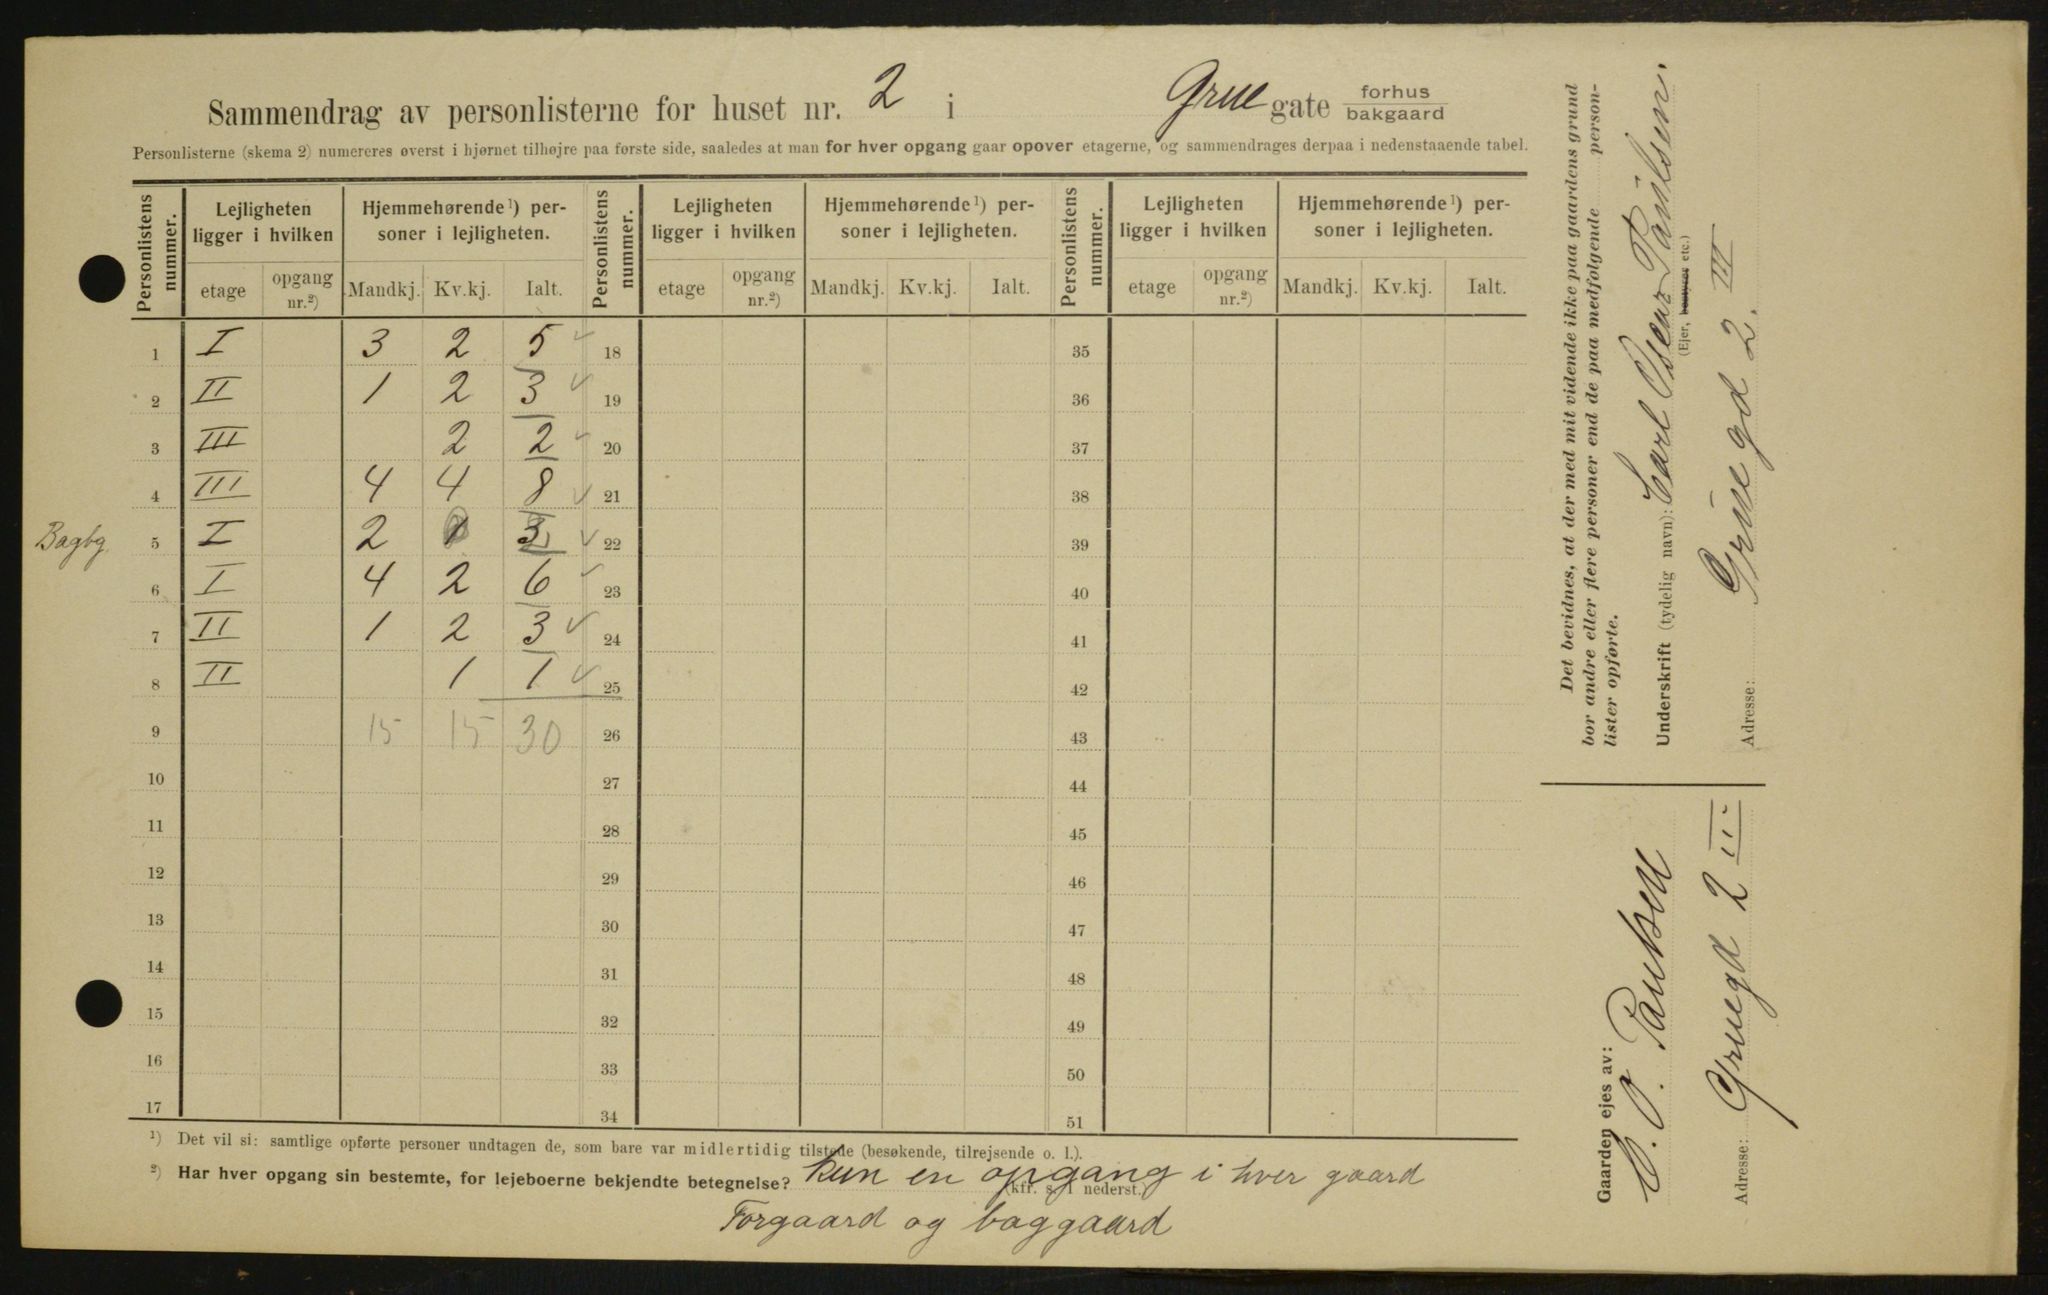 Sammendrag av personlisterne for huset nr. 2 i Grue gate forhus bakgaard
Personlisterne (skema 2) numereres øverst i hjørnet tilhøjre paa første side, saaledes at man for hver opgang gaar opover etagerne, og sammendrages derpaa i nedenstaaende tabel.
Personlistens nummer. Lejligheten ligger i hvilken Hjemmehørende ¹) personer i lejligheten. Personlistens nummer. Lejligheten ligger i hvilken Hjemmehørende ¹) personer i lejligheten. Personlistens nummer. Lejligheten ligger i hvilken Hjemmehørende ¹) personer i lejligheten.
etage opgang nr.²) Mandkj. Kv.kj. Ialt. etage opgang nr.²) Mandkj. Kv.kj. Ialt. etage opgang nr.²) Mandkj. Kv.kj. Ialt.
1 I 3 2 5 ✓ 18 35
2 II 1 2 3 ✓ 19 36
3 III 2 2 ✓ 20 37
4 III 4 4 8 ✓ 21 38
Bagbg. 5 I 2 1 3 ✓ 22 39
6 I 4 2 6 ✓ 23 40
7 II 1 2 3 ✓ 24 41
8 II 1 1 ✓ 25 42
9 15 15 30 26 43
10 27 44
11 28 45
12 29 46
13 30 47
14 31 48
15 32 49
16 33 50
17 34 51
¹) Det vil si: samtlige opførte personer undtagen de, som bare var midlertidig tilstede (besøkende, tilrejsende o. l.).
²) Har hver opgang sin bestemte, for lejeboerne bekjendte betegnelse? kun en opgang i hver gaard
(kfr. s. 1 nederst.)
Forgaard og baggaard
Det bevidnes, at der med mit vidende ikke paa gaardens grund
bor andre eller flere personer end de paa medfølgende personlister opførte.
Underskrift (tydelig navn): Carl Oscar Paulsen.
(Ejer, bestyrer etc.)
Adresse: Gruegd 2. III
Gaarden ejes av:
C. O. Paulsen
Adresse: Gruegd 2 III